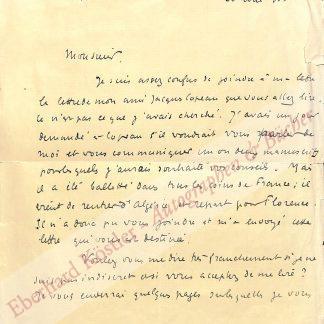 Monsieur,
Je suis assez confus de joindre à ma lettre
la lettre de mon ami Jacques Copeau que vous allez lire.
Ce n'est pas ce que j'avais cherché. J'avais un jour
demandé à Copeau s'il voudrait vous parler de
moi et vous communiquer un ou deux manuscrits
pour lesquels j'aurais souhaité vos conseils. Mais
il a été ballotté dans tous les coins de France; il
vient de rentrer d'Algérie et repart pour Florence
Il n'a donc pu vous joindre et m'a envoyé cette
lettre qui vous est destinée.
Voulez vous me dire très franchement si je ne
suis pas indiscret et si vous acceptez de me lire?
Je vous enverrai quelques pages sur lesquelles je vous
Eberhard Köstler Autographen & Bücher